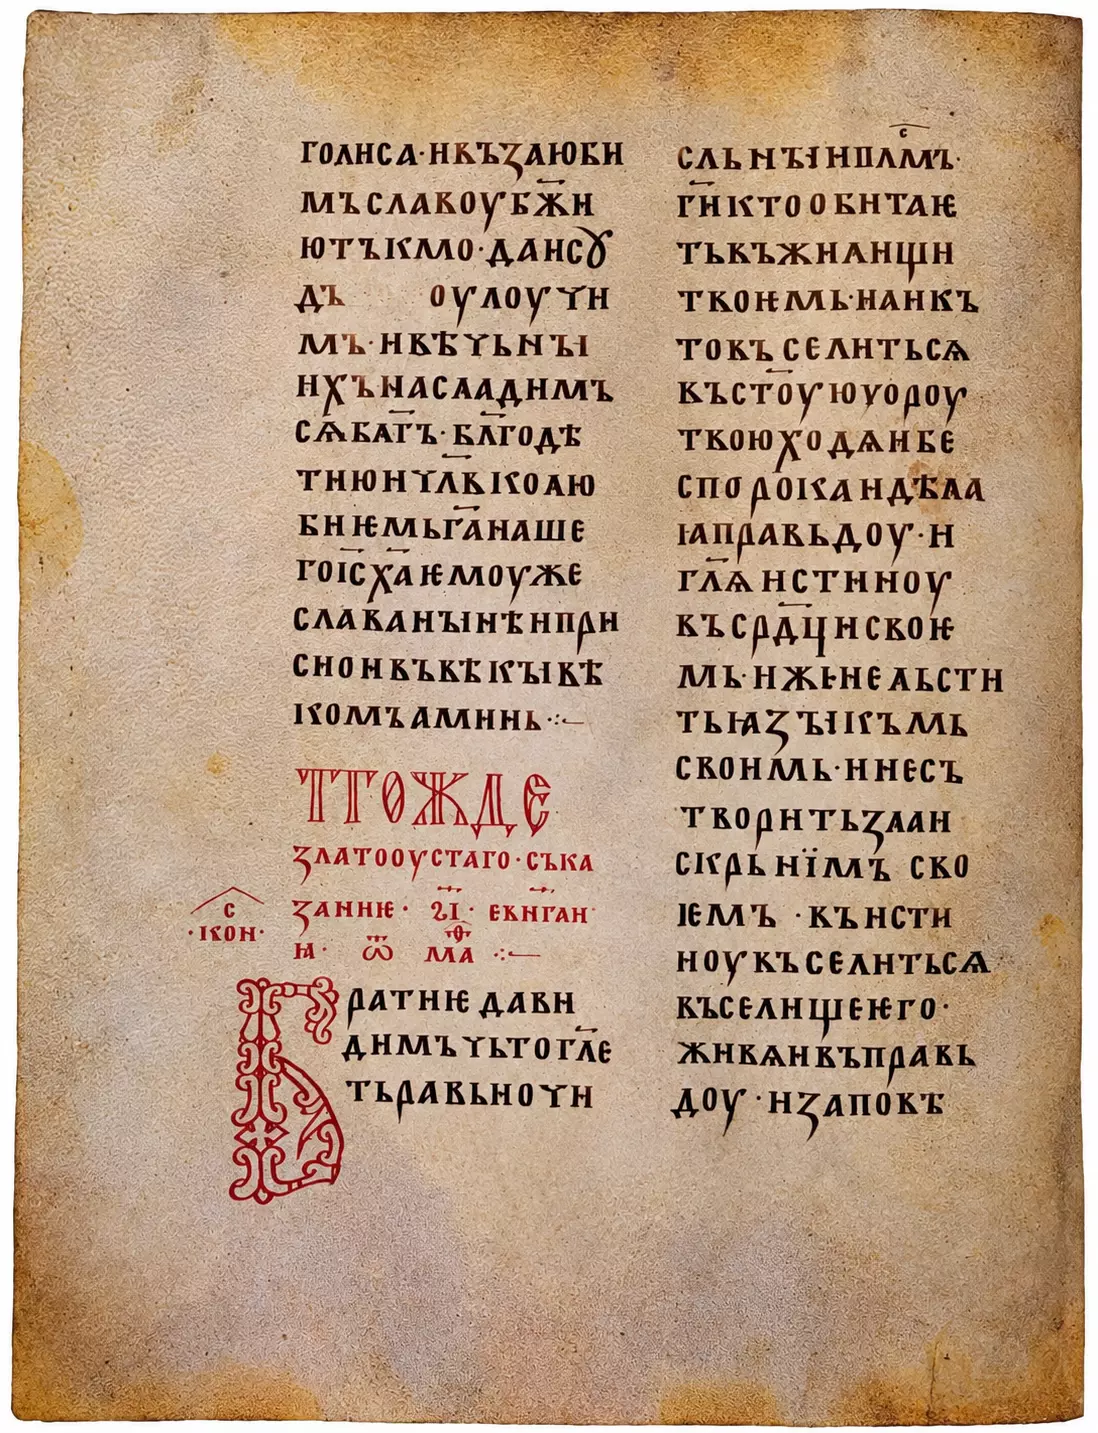 голиса·нвъзлюби
мъславоуб҃жи
ютъкмо·даисꙋ
дъ оулоучи
мъ·нвѣчьнꙑ
ихънасладимъ
сѧбл҃гъ·бл҃годѣ
тиюич҃лвколю
биѥмьг҃анаше
гоі҃сх҃аѥмоуже
славанꙑнѣипри
сноивъвѣкꙑвѣ
комъаминь·:~
Тогожде
златооустаго·съка
заниѥ· г҃і· еѵнган
ꙗ· ѿ мⷴ҃а ·:~
с
·ікон·
Братиѥдави
димъчьтогл҃е
тьравьночи
сльнꙑиплⷭ҇мъ·
г҃икто обитаѥ
тьвъжилищи
твоѥмь·иликъ
товъселитьсѧ
въст҃оуюгороу
твоюходѧибе
спорокаидѣла
ꙗправьдоу·и
гл҃ѧистиноу
въсрд҃цисвоѥ
мь·ижєнельсти
тьꙗзꙑкъмь
своимь·инесъ
творитьзлаи
скрьнїмъ сво
ѥмъ ·къисти
ноувъселитьсѧ
въселищиѥго·
живѧивъправь
доу·изаповѣ